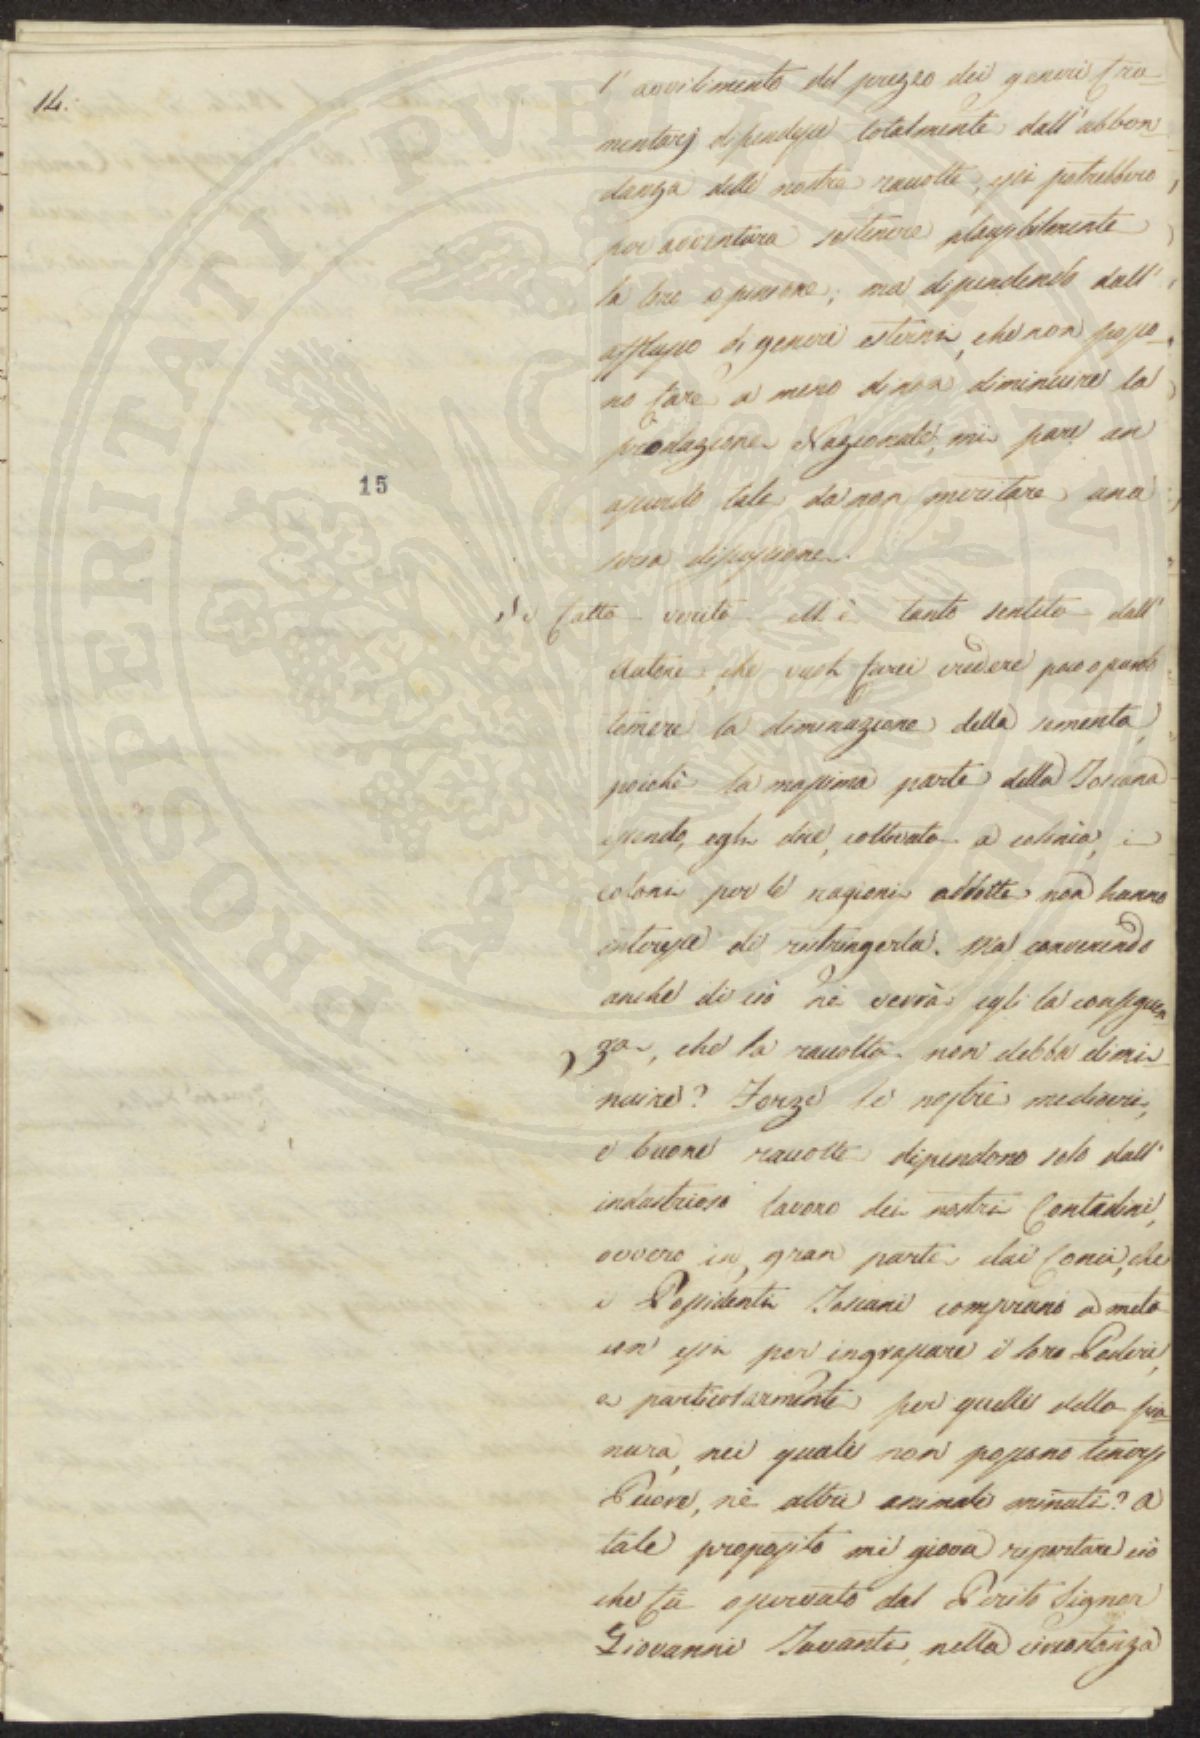 14.
l'avvilimento del prezzo dei generi fru-
mentarj dipendesse totalmente dall'abbon
danza delle nostre raccolte, essi potrebbero
per avventura sostenere plausibilmente
la loro opinione; ma dipendendo dall'
afflusso di generi esterni, che non posso-
no fare a meno di non diminuire la
produzione Nazionale, mi pare un
assurdo tale da non meritare una
seria discussione.
15
Di fatto verità ell'è tanto sentita dall'
Autore, che vuol farci credere poco o punto
temere la diminuzione della sementa,
poichè la massima parte della Toscana
essendo, egli dice, coltivata a colonia, i
coloni per le ragioni addotte non hanno
interesse di restringerla. Ma convenendo
anche di ciò nè verrà egli la conseguen
za, che la raccolta non debba dimi-
nuire? Forze le nostre mediocri,
e buone raccolte dipendono solo dall'
industrioso lavoro dei nostri Contadini,
ovvero in gran parte dai Conci, che
i Possidenti Toscani comprano a metà
con essi per ingrassare i loro Poderi,
e particolarmente per quelli della pia
nura, nei quali non possono tenersi
Pecore, nè altri animali minuti? A
tale proposito mi giova riportare ciò
che fu osservato dal Perito Signor
Giovanni Tavanti, nella circostanza
PROSPERITATI PVBLICAE AVGENDAE